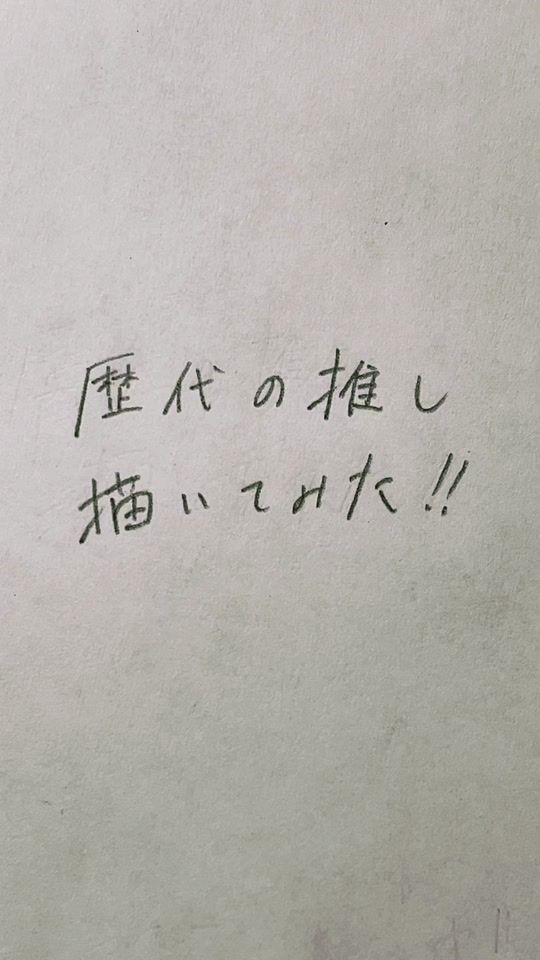 歴代の推し
描いてみた!!